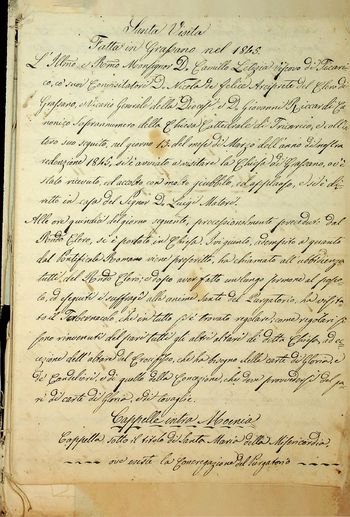 Santa Visita
Fatta in Grassano nel 1845.
L'Illmo e Rmo Monsignor D. Camillo Letizia Vescovo di Tricari-
co, co' suoi Convisitatori D. Nicola de Felice Arciprete del Clero di
Grassano, e Vicario Generale della Diocesi, e D. Giovanni Ricciardi Ca-
nonico Soprannumero della Chiesa Cattedrale di Tricarico, e coll'in-
tero suo seguito, nel giorno 13 del mese di Marzo dell'anno di nostra
redenzione 1845, si è avviato a visitare la Chiesa di Grassano, ov'è
stato ricevuto, ed accolto con molto giubbilo, ed applauso, e si è di-
retto in casa del Signor D. Luigi Materi.
Alle ore quindici del giorno seguente, processionalmente preceduto dal
Rmdo Clero, si è portato in Chiesa. Ivi giunto, adempito a quanto
dal Pontificale Romano viene prescritto, ha chiamato all'ubbidienza
tutti del Rmdo Clero; e dopo aver fatto un lungo sermone al popo-
lo, ed eseguiti i suffragi alle anime sante del Purgatorio, ha visita-
to il Tabernacolo, che in tutto si è trovato regolare; come regolari si
sono rinvenuti del pari tutti gli altri altari di detta Chiesa, ad ec-
cezione dell'altare del Crocifisso, che ha bisogno delle carte di Gloria e
di Candelieri, e di quello della Concezione, che deve provvedersi del pa-
ri di carte di Gloria, e di tovaglie.
Cappelle intra Moenia
Cappella sotto il titolo di Santa Maria della Misericordia,
ove esiste la Congregazione del Purgatorio